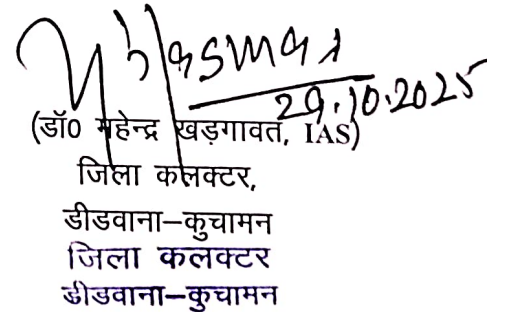 29.10.2025
(डॉ0 महेन्द्र खड़गावत, IAS)
जिला कलक्टर,
डीडवाना–कुचामन
जिला कलक्टर
डीडवाना–कुचामन